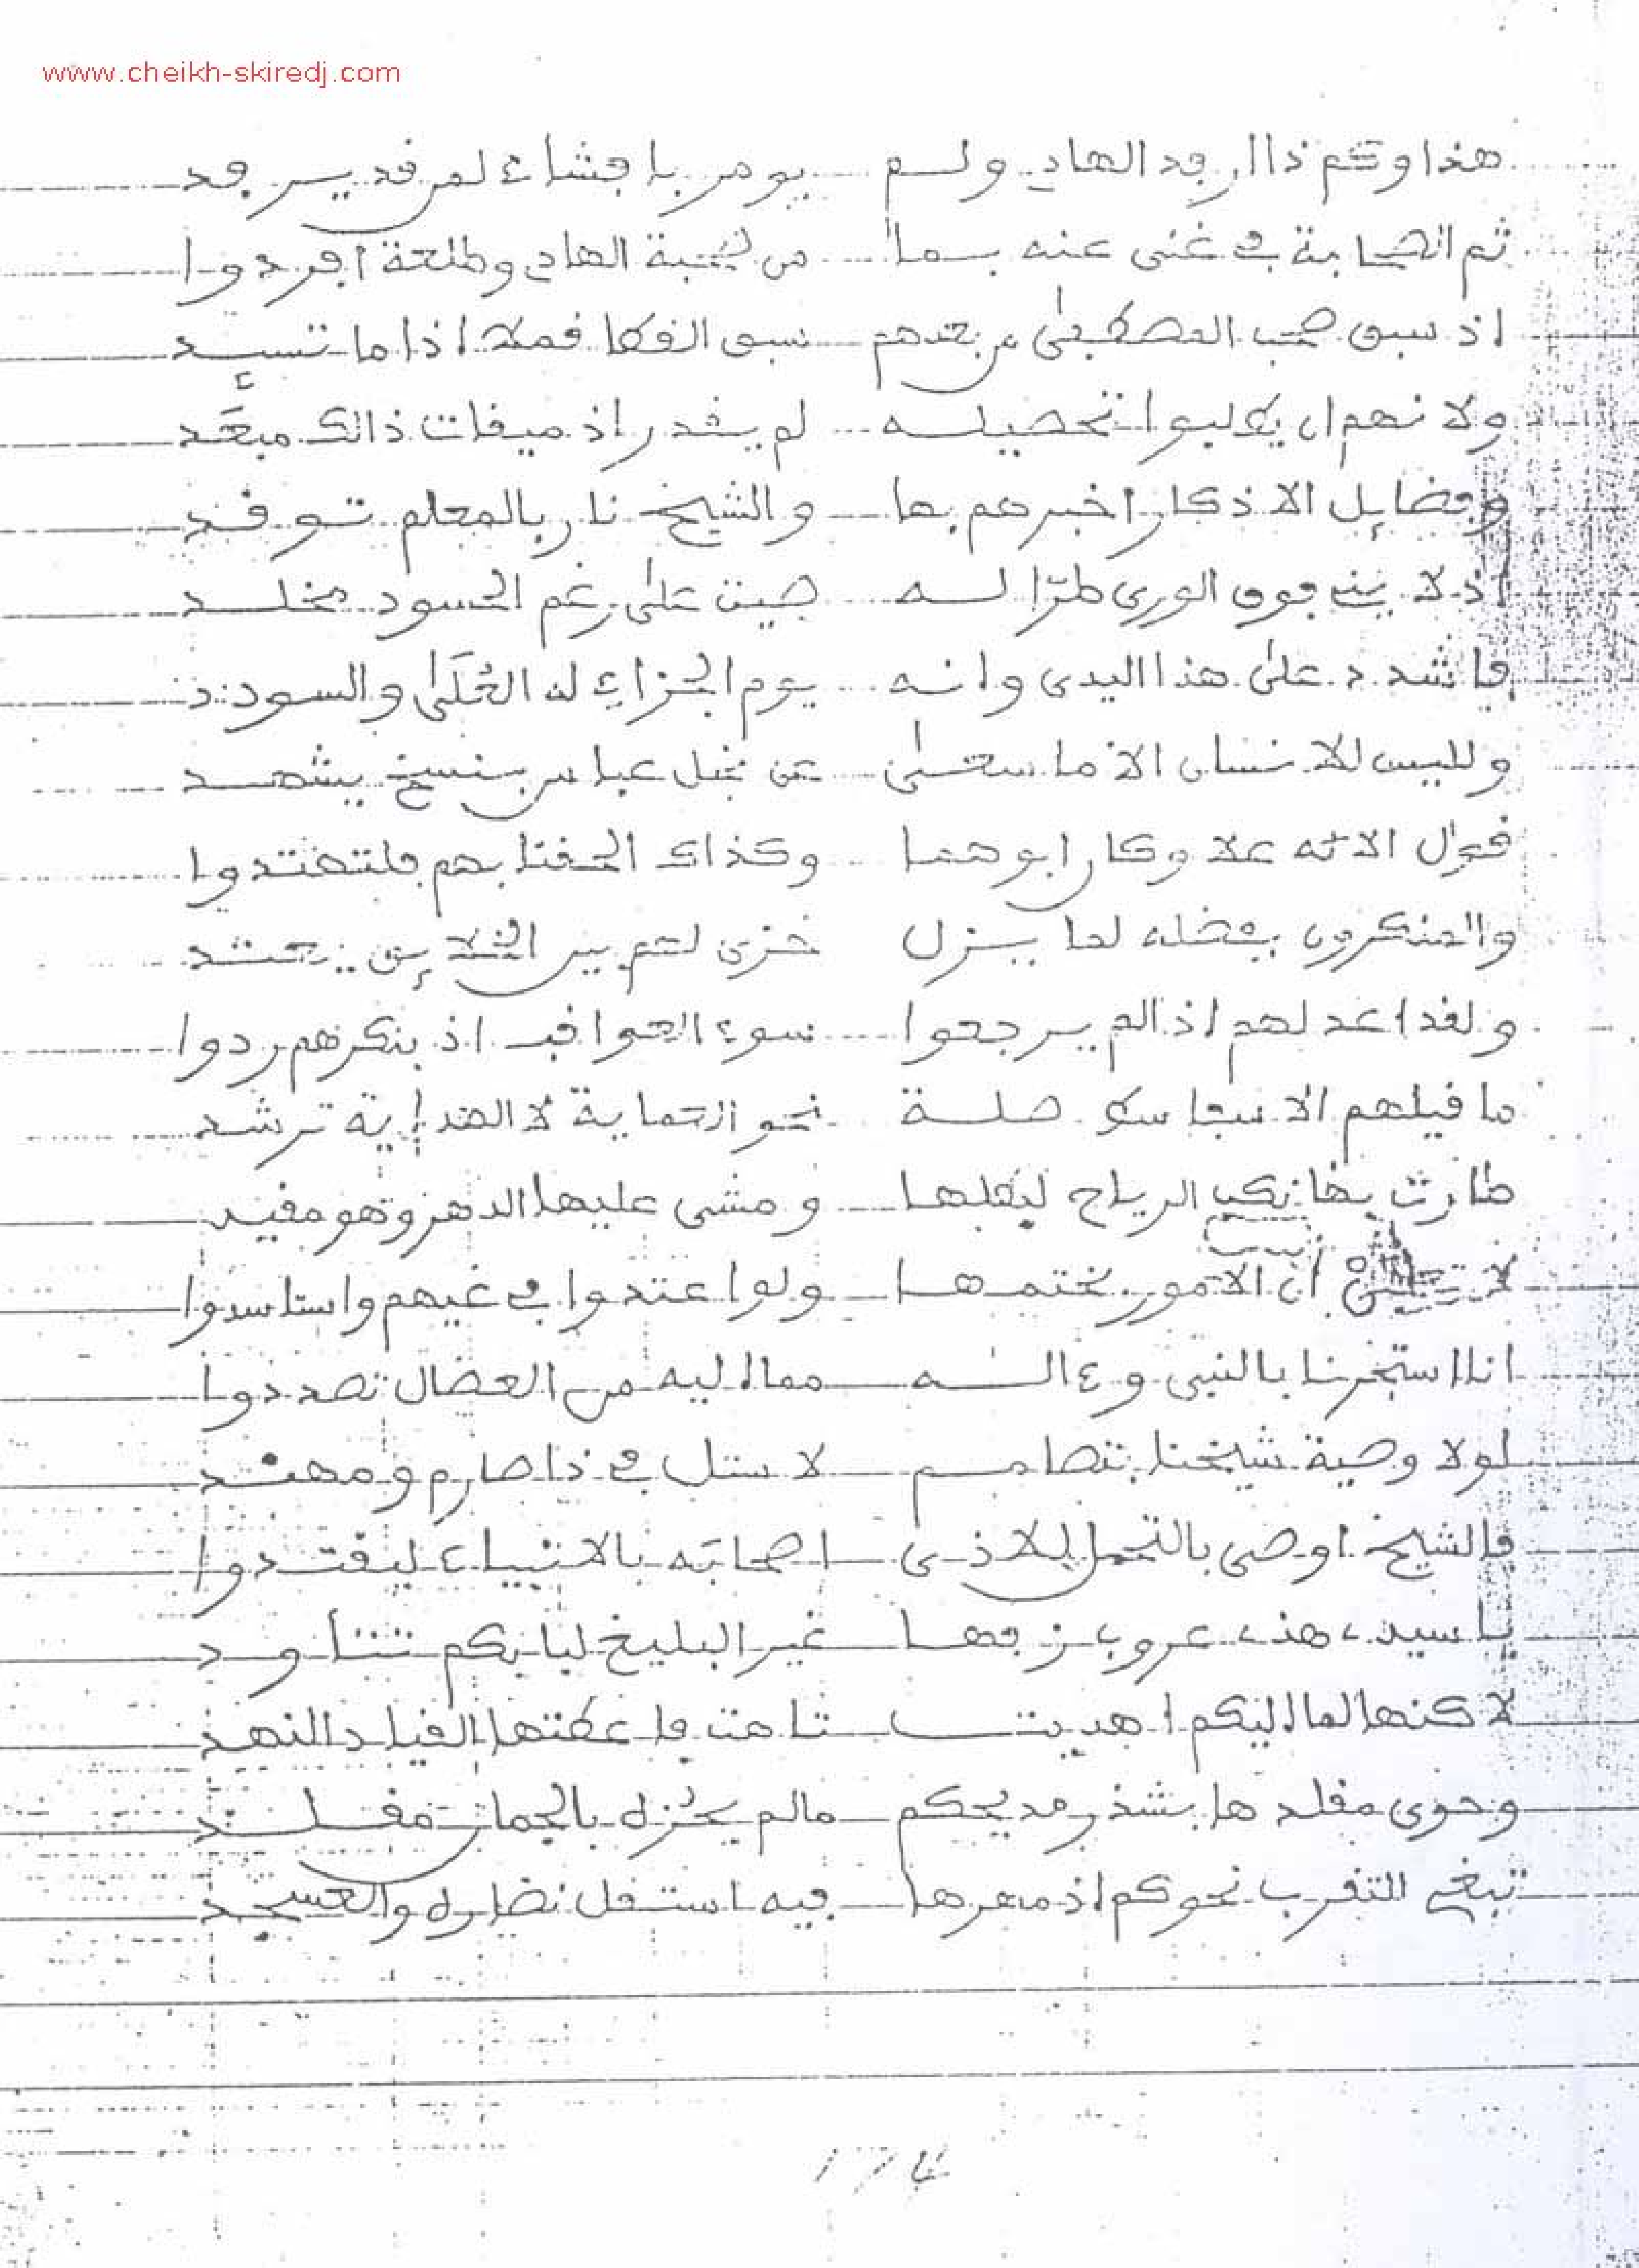 www.cheikh-skiredj.com
هذا وكم ذا ارفد الهادي ولم يومر بافشاء لمن قد يسرفد
ثم الصحابة في غنى عنه بما من صحبة الهادي وطلعة افردوا
اذ سبق صحب المصطفى من بعدهم سبق القطا فمك اذا ما تسئد
ولانهم ان يطلبوا تحصيله لم يقدر اذ ميقات ذالك مبعد
وفضايل الاذكار اخبرهم بها والشيخ نار بالمعلم توقد
اذ لا نبي فوق الورى طرا له صيت على رغم الحسود مخلد
فاشدد على هذا اليدى وانه يوم الجزاء له العلى والسودد
ولليس للانسان الا ما سعى عن نجل عباس بنسخ يشهد
قول الاله علا وكان ابوهما وكذاك الحقنا بهم فلتهتدوا
والمنكرون بفضله لما يزل خزى لهم بين الخلائق يعقد
ولقد اعد لهم اذا لم يرجعوا سوء العواقب اذ بنكرهم ردوا
ما قيلهم الا سبا سك صلة نحو العماية لا الهداية ترشد
طارت بها نكب الرياح ليقلها ومشى عليها الدهر وهو مفيد
لا ان الامور بختمها ولو اعتدوا في غيهم واستاسدوا
انا استجرنا بالنبي وءاله مما اليه من العضال تصددوا
لولا وصية شيخنا بتصامم لاستل في ذا صارم ومهند
فالشيخ اوصى بالتحمل للاذى اصحابه بالانبياء ليقتدوا
يا سيدي هذي عروب زفها غير البليغ لبابكم تتأود
لاكنها لما اليكم اهديت تاهت فاعطتها القياد النهد
وحوى مقلدها بشذر مديحكم مالم يحزه بالجمان مقلد
تبغي التقرب نحوكم اذ مهرها فيه استقل نضاره والعسجد